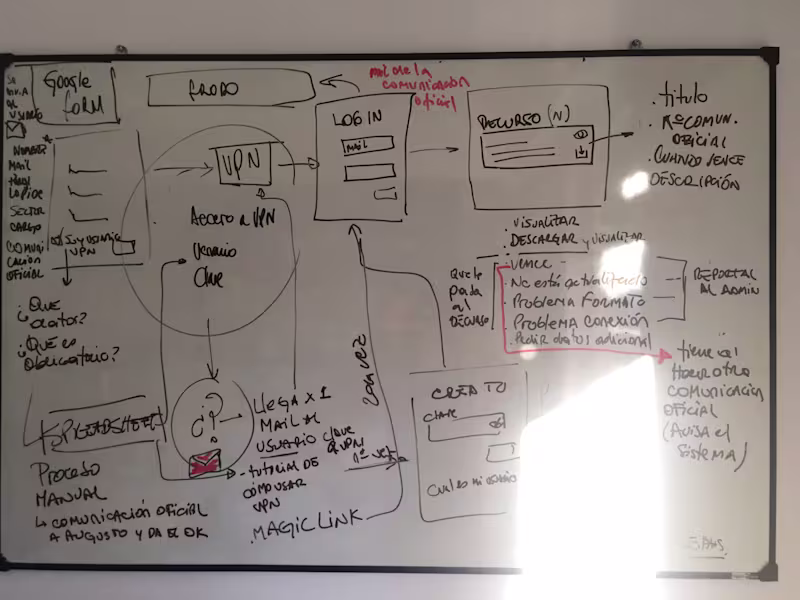 Google
Form
NOMBRE
MAIL
SECTOR
CARGO
COMUNI
CACIÓN
OFICIAL
VPN
¿QUÉ
datos?
¿QUÉ es
obligatorio?
SPREADSHEET
PROCESO
MANUAL
↳ COMUNICACIÓN OFICIAL
A AUGUSTO Y DA EL OK
VPN
Acceso a VPN
Usuario
Clave
¿?
LLEGA x 1
MAIL
USUARIO CLAVE
VPN
- TUTORIAL DE
CÓMO USAR
VPN
MAGIC LINK
1ª VEZ
2da VEZ
nro de la
comunicación
oficial
LOG IN
MAIL
CREA TO
CLAVE
Cual es mi usuario
RECURSO (N)
. título
. Nº COMUN.
OFICIAL
. CUANDO VENCE
DESCRIPCIÓN
. VISUALIZAR
. DESCARGAR y VISUALIZAR
Que le
pasa al
RECURSO
. VENCE -
. No está actualizado
. Problema FORMATO
. Problema conexión
. Pedir datos adicional
REPORTAR
AL ADMIN
tiene q
Hacer otra
COMUNICACIÓN
OFICIAL
(AVISA el
SISTEMA)